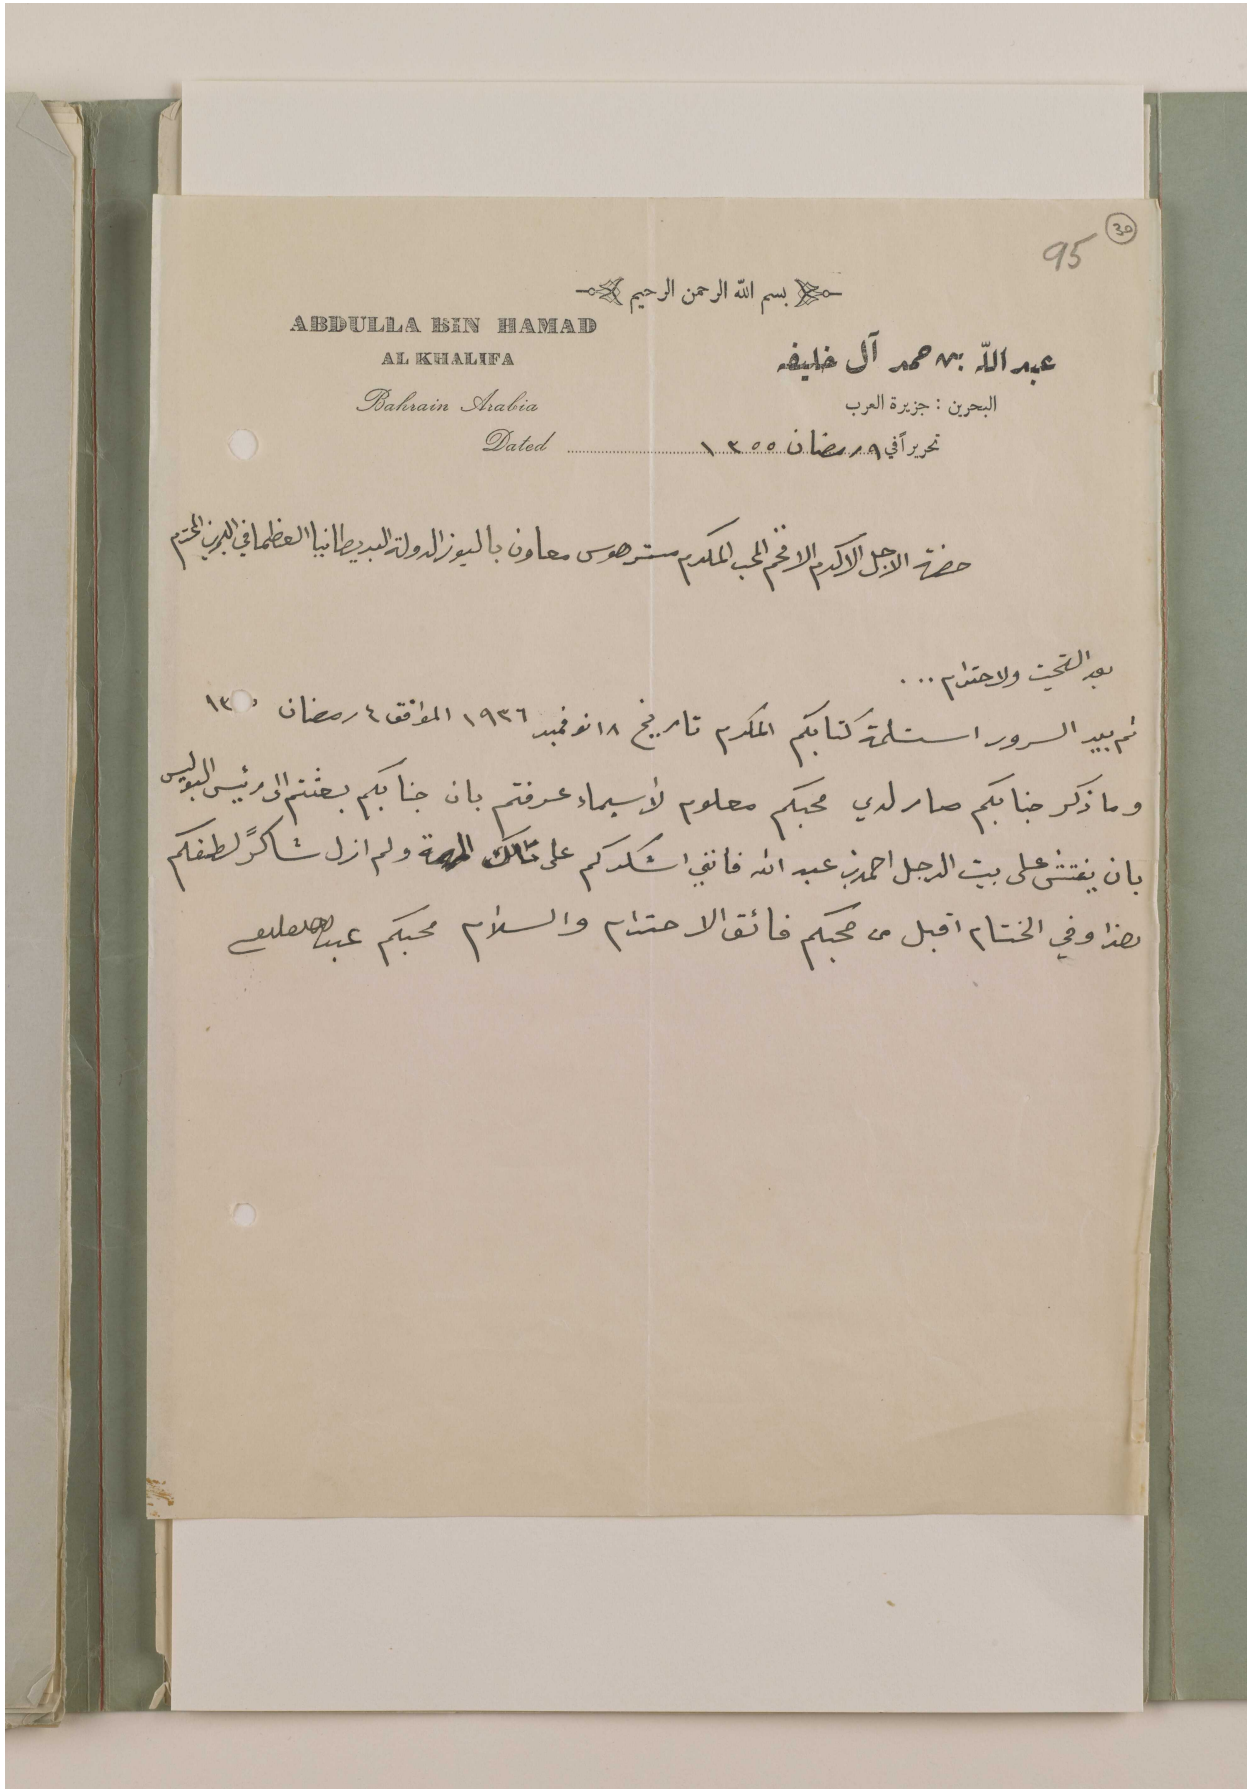 30
95
بسم الله الرحمن الرحيم
ABDULLA BIN HAMAD
AL KHALIFA
Bahrain Arabia
Dated
عبد الله بن حمد آل خليفه
البحرين : جزيرة العرب
تحريراً في ٩ رمضان ١٣٥٥
حضرة الاجل الاكرم الافخم المحب المكرم مستر هوس معاون باليوز الدولة البريطانيا العظما في البحرين المحترم
بعد التحيت ولاحترام ...
ثم بيد السرور استلمة كتابكم المكرم تاريخ ١٨ نوفمبر ١٩٣٦ الموافق ٤ رمضان ١٣
وما ذكر جنابكم صار لدي محبكم معلوم لأسيماء عرفتم بان جنابكم بعثتم الى رئيس البوليس
بان يفتش على بيت الرجل احمد بن عبد الله فانني اشكركم على تلك ولم ازل شاكرً لطفكم
هذا وفي الختام اقبل من محبكم فائق الاحترام والسلام محبكم